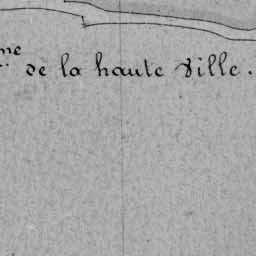 me de la haute Ville.